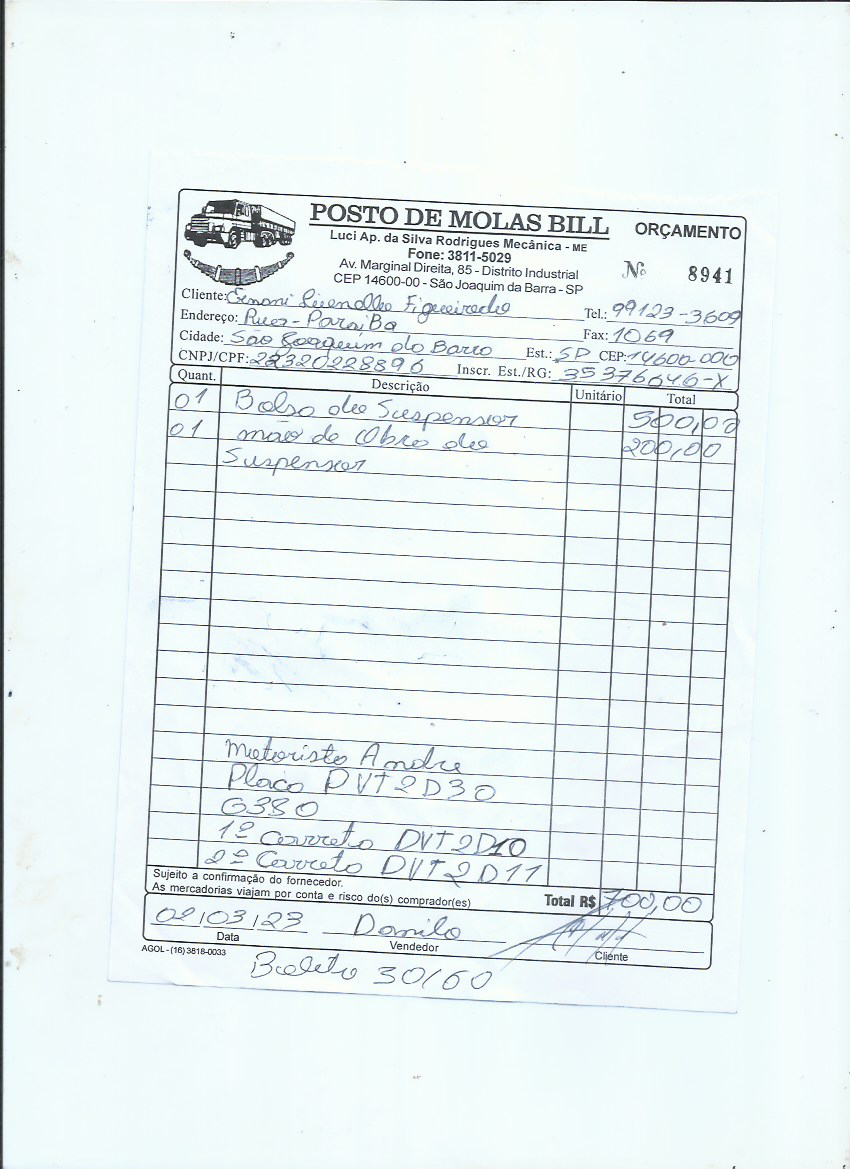 POSTO DE MOLAS BILL
ORÇAMENTO
Luci Ap. da Silva Rodrigues Mecânica - ME
Fone: 3811-5029
Av. Marginal Direita, 85 - Distrito Industrial
CEP 14600-00 - São Joaquim da Barra - SP
Nº 8941
Cliente: Figueiredo Tel.: 99123-3609
Endereço: Rua - Paraiba Fax: 1069
Cidade: São Joaquim da Barra Est.: SP CEP: 14600-000
CNPJ/CPF: 22320228896 Inscr. Est./RG: 35376646-X
Quant. Descrição Unitário Total
01 Bolsa de Suspensor 500,00
01 mão de Obra de 200,00
Suspensor
Motorista Andre
Placa DVT2D30
G380
1º Carreta DVT2D10
2º Carreta DVT2D11
Sujeito a confirmação do fornecedor.
As mercadorias viajam por conta e risco do(s) comprador(es)
Total R$ 700,00
02/03/23 Danilo
Data Vendedor Cliente
AGOL - (16) 3818-0033
Boleto 30/60